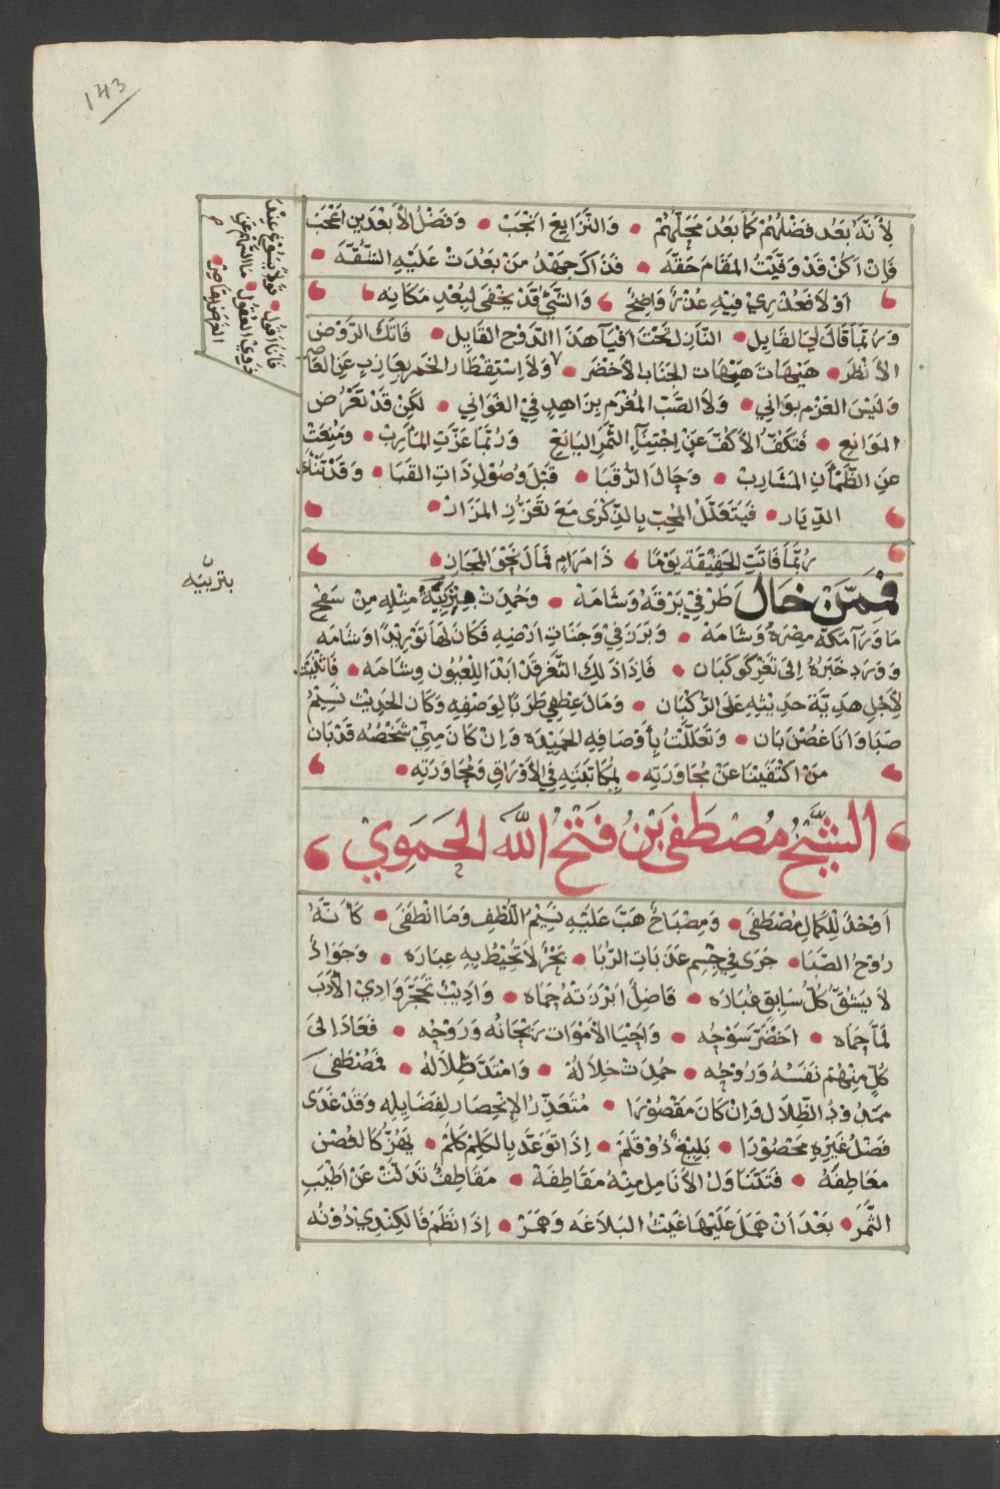 143
لِأَنَّهُ بَعُدَ فَضْلُهُمْ كَمَا بَعُدَ مَحَلُّهُمْ • وَالنَّزَايِعُ اَنْجَبْ • وَفَضْلُ الْأَبْعَدِينِ اَعْجَبْ
فَإِنْ اَكُنْ قَدْ وَفَّيْتُ المَقَامَ حَقَّهُ • فَذَاكَ جَهْدُ مَنْ بَعُدَتْ عَلَيْهِ الشُّقَّهْ •
اَوْ لَا فَعُذْرِيْ فِيْهِ عُذْرٌ وَاضِحٌ ، وَالشَّيْءُ قَدْ يَخْفَى لِبُعْدِ مَكَانِهِ
وَرُبَّمَا قَالَ لِيَ القَايِل • النَّازِلُ تَحْتَ اَفْيَآءِ هَذَا الدَّوْحِ القَايِل • فَاتَكَ الرَّوْض
الأَنْظَر • هَيْهَاتَ هَيْهَاتَ الجَنَابُ الأَخْضَر • وَلَا اِسْتِقْطَار الخَمْر بِعَازِبٍ عَنِ العَاصِر
وَلَيْسَ العَزْم بِوَانِي • وَلَا الصَّبّ المُغْرَم بِزَاهِدٍ فِي الغَوَانِي • لَكِنْ قَدْ تَعْرُض
المَوَانِع • فَتَكُفُّ الأَكُفّ عَنْ اِجْتِنَآءِ الثَّمَرِ اليَانِع وَرُبَّمَا عَزَّتِ المَآرِب • وَمُنِعَتْ
عَنِ الظَّمْآنِ المَشَارِب • وَحَالَ الرُّقَبَا • قَبْلَ وُصُوْلِ ذَاتِ القَبَا • وَقَدْ تَنْأَى
الدِّيَار • فَيَتَعَلَّلُ المُحِبّ بِالذِّكْرَى مَعَ تَعَزُّزِ المَزَار •
رُبَّمَا فَاتَتِ الحَقِيْقَة يَوْمًا ، ذَا مَرَامٍ فَمَالَ نَحْوَ المَجَاز •
فَمِمَّنْ خَالَ طَرْفِيْ بَرْقَهُ وَشَامَهْ • وَحُمِدَتْ بِتَرْبِيَّهِ مِثْلِهِ مِنْ سَفْحِ
مَا وَرَآ مَكَّة مِصْرهُ وَشَامَهْ • وَبَرَزَ فِيْ وَجَنَاتِ اَرْضِهِ فَكَانَ لَهَا تَوْرِيْدًا وَشَامَهْ
وَوَرَدَ خَبَرُهُ اِلَى ثَغْرِ كَوْكَبَان • فَإِذَا ذَلِكَ الثَّغْر قَدْ اَبْدَا لِلْعُيُونِ وِشَامَه •
لِأَجْلِ هَدِيَّة حَدِيْثِهِ عَلَى الرُّكْبَان • وَمَالَ عِطْفِي طَرَبًا لِوَصْفِهِ وَكَانَ الحَدِيْث نَسِيْمُ
صَبَا وَاَنَا غُصْن بَان • وَتَعَلَّلْتُ بِأَوْصَافِهِ الحَمِيْدَه وَاِنْ كَانَ مِنِّيْ شَخْصُهُ قَدْ بَان
مَنِ اكْتَفَيْنَا عَنْ مُجَاوَرَتِه • بِمُكَاتَبَتِهِ فِي الأَوْرَاقِ وَمُحَاوَرَتِهِ •
الشَّيْخُ مُصْطَفَى بْنُ فَتْحُ اللَّهْ الحَمَوِيْ
اَوْحَدٌ لِلْكَمَالِ مُصْطَفَى • وَمِصْبَاحٌ هَبَّ عَلَيْهِ نَسِيْمُ اللُّطْفِ وَمَا انْطَفَى • كَأَنَّهُ
رُوْحُ الصَّبَا • جَرَى فِيْ جِسْمِ عَذَبَاتِ الرُّبَا • بَحْرٌ لَا تُحِيْطُ بِهِ عِبَارَه • وَجَوَادٌ
لَا يَشُقُّ كُلُّ سَابِقٍ غُبَارَه • فَاضِلٌ اَبْرَزَتْهُ حِمَاه • وَادِيْبٌ تَحَجَّرَ وَادِيَ الأَدَب
لَمَّا حِمَاه • اخْضَرَّ سَوْحُه • وَاَحْيَا الأَمْوَاتِ رَيْحَانُه وَرَوْحُه • فَعَادَ اِلَى
كُلٍّ مِنْهُمْ نَفَسُهُ وَرُوْحُه • حُمِدَتْ خِلَالُهُ • وَامْتَدَّ ظِلَالُهُ • فَمُصْطَفَى
مَمْدُوْدُ الظِّلَال وَاِنْ كَانَ مَقْصُوْرًا • مُتَعَذِّرُ الإِنْحِصَار لِفَضَايِلِه وَقَدْ غَدَى
فَضْلُ غَيْرِهِ مَحْصُوْرًا • بَلِيْغٌ ذُوْ قَلَمْ • اِذَا تَوَعَّدَ بِالكَلِمْ كَلَمْ • يَهُزُّ كَالغُصْن
مَعَاطِفَهْ • فَتَتَنَاوَلُ الأَنَامِل مِنْهُ مَقَاطِفَهْ • مَقَاطِفٌ تَدَلَّتْ عَنْ اَطْيَبِ
الثَّمَرْ • بَعْدَ اَنْ هَمَلَ عَلَيْهَا غَيْثُ البَلَاغَه وَهَمَرْ • اِذَا نَظَمَ فَالكِنْدِيْ دُوْنَهُ
فَأَنَا اَقُول • قَوْلًا يَسُوْغُ عِنْدَ
ذَوِي العُقُول •
بتربيّه